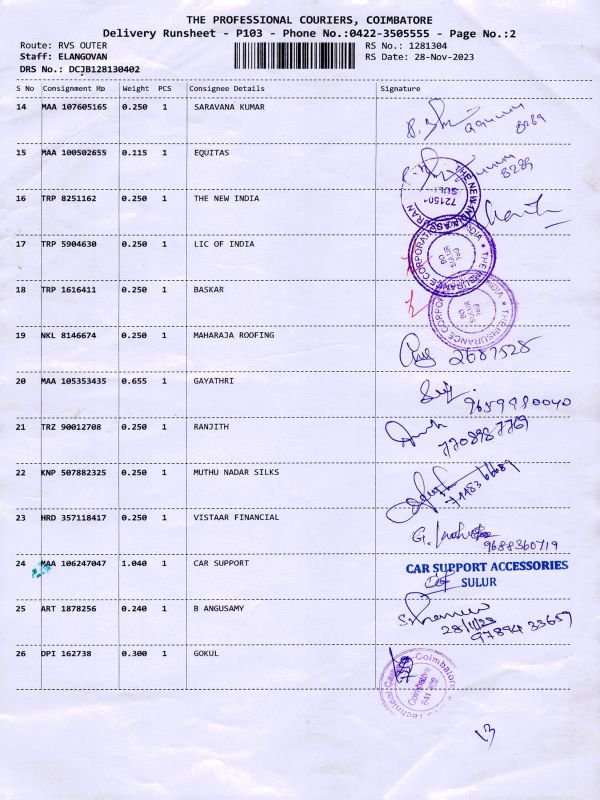 THE PROFESSIONAL COURIERS, COIMBATORE
Delivery Runsheet - P103 - Phone No.:0422-3505555 - Page No.:2
Route: RVS OUTER
RS No.: 1281304
Staff: ELANGOVAN
RS Date: 28-Nov-2023
DRS No.: DCJB128130402
S No Consignment Mp Weight PCS Consignee Details Signature
14 MAA 107605165 0.250 1 SARAVANA KUMAR
8289
15 MAA 100502655 0.115 1 EQUITAS
8289
16 TRP 8251162 0.250 1 THE NEW INDIA
17 TRP 5904630 0.250 1 LIC OF INDIA
18 TRP 1616411 0.250 1 BASKAR
19 NKL 8146674 0.250 1 MAHARAJA ROOFING
2687528
20 MAA 105353435 0.655 1 GAYATHRI
9659980040
21 TRZ 90012708 0.250 1 RANJITH
7708987769
22 KNP 507882325 0.250 1 MUTHU NADAR SILKS
23 HRD 357118417 0.250 1 VISTAAR FINANCIAL
9688360719
24 MAA 106247047 1.040 1 CAR SUPPORT
CAR SUPPORT ACCESSORIES
SULUR
25 ART 1878256 0.240 1 B ANGUSAMY
28/11/23
97894 33657
26 DPI 162738 0.300 1 GOKUL
Coimbatore
641 402
13